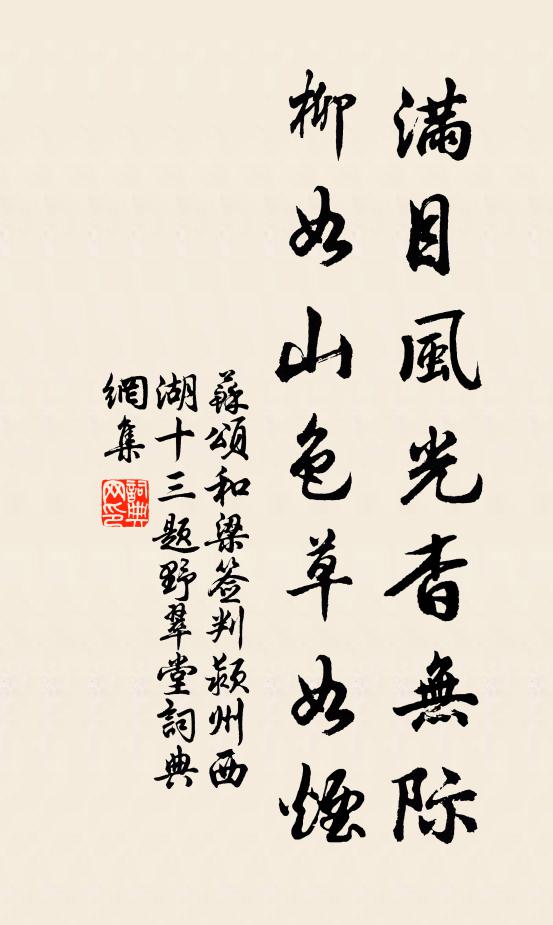 滿目風光杳無際
柳如山色草如煙
蘇頌和梁簽判潁州西
湖十三題野翠堂詞典
網集
詞典
网印